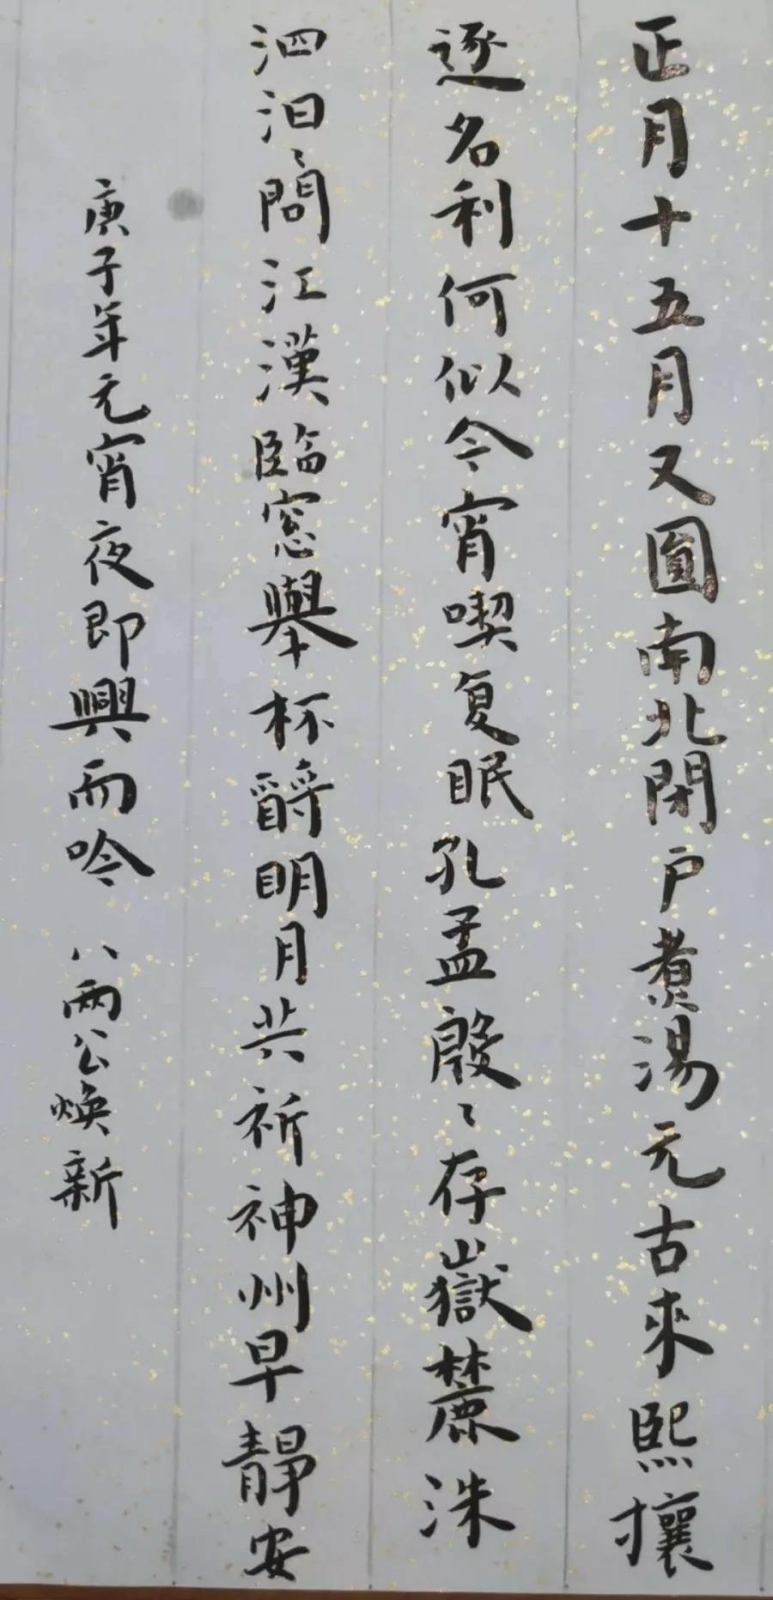 正月十五月又圓南北閉户煮湯元古來熙攘
逐名利何似今宵喫复眠孔孟殷〻存嶽麓洙
泗汩〻問江漢臨窓舉杯酹明月共祈神州早靜安
庚子年元宵夜即興而吟 八兩公煥新